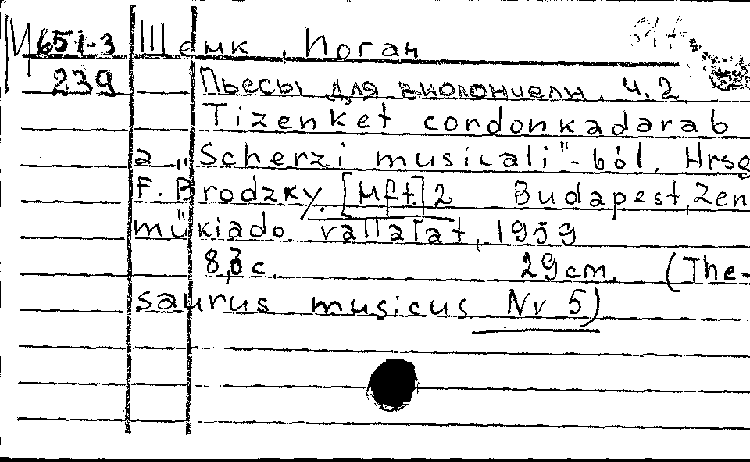 М 651-3 Шенк, Иоган
239 Пьесы для виолончели. Ч. 2
Tizenket cordonkadarab
a „Scherzi musicali"-ból. Hrsg
F. Brodzky. [Hft] 2 Budapest, Zen
mükiado vallalat, 1959
8,3 с. 29 cm. (The-
saurus musicus Nr 5)